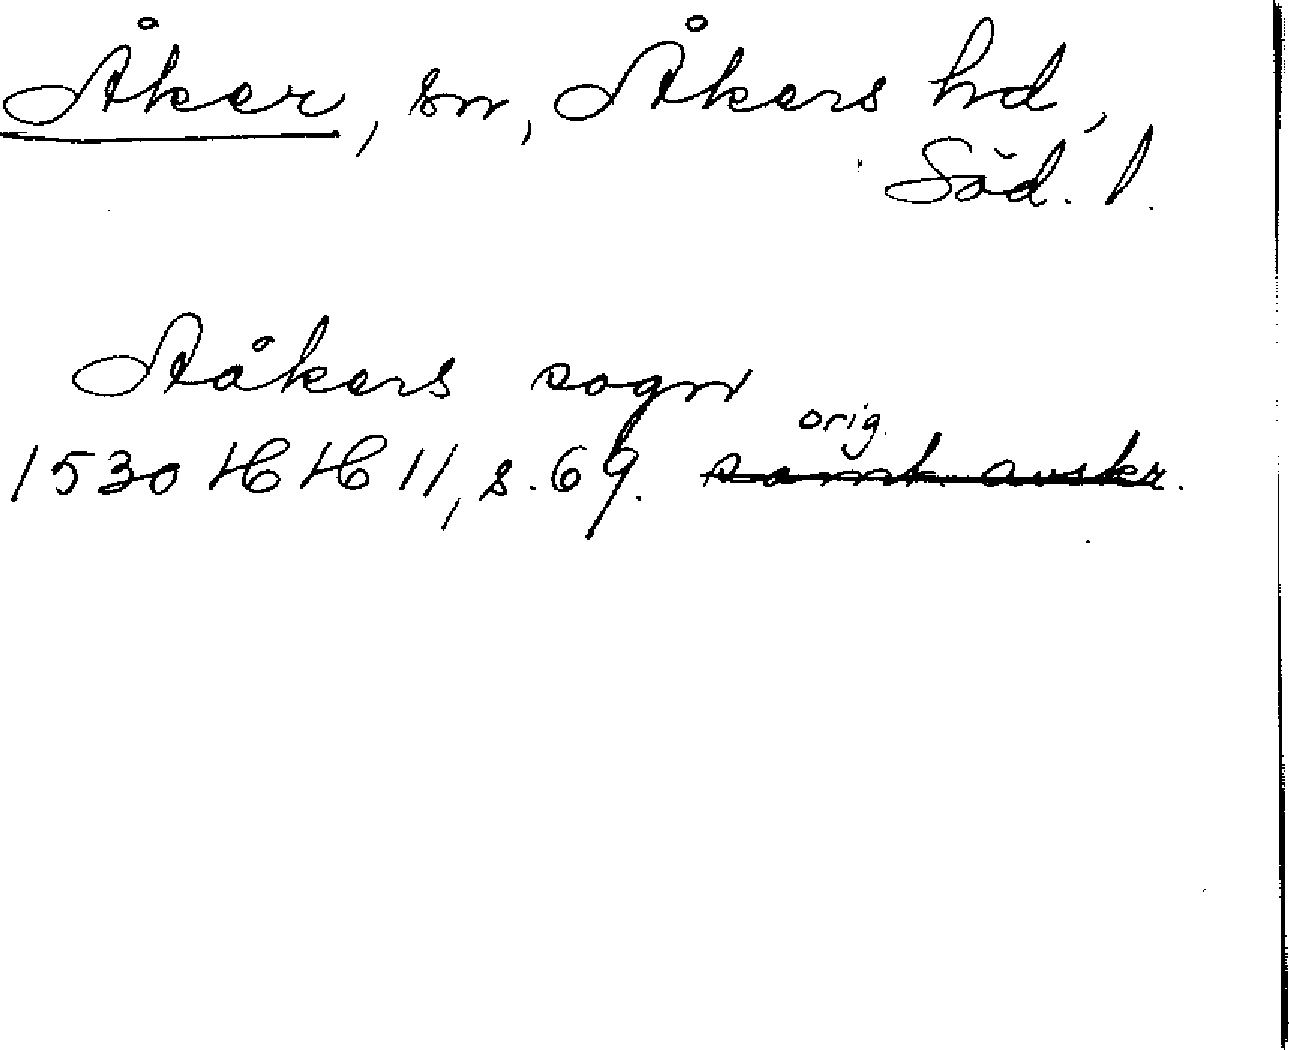 Åker, sn, Åkers hd,
Söd. l.
Aåkers sogn
orig.
1530 HH 11, s. 69. samt. avskr.